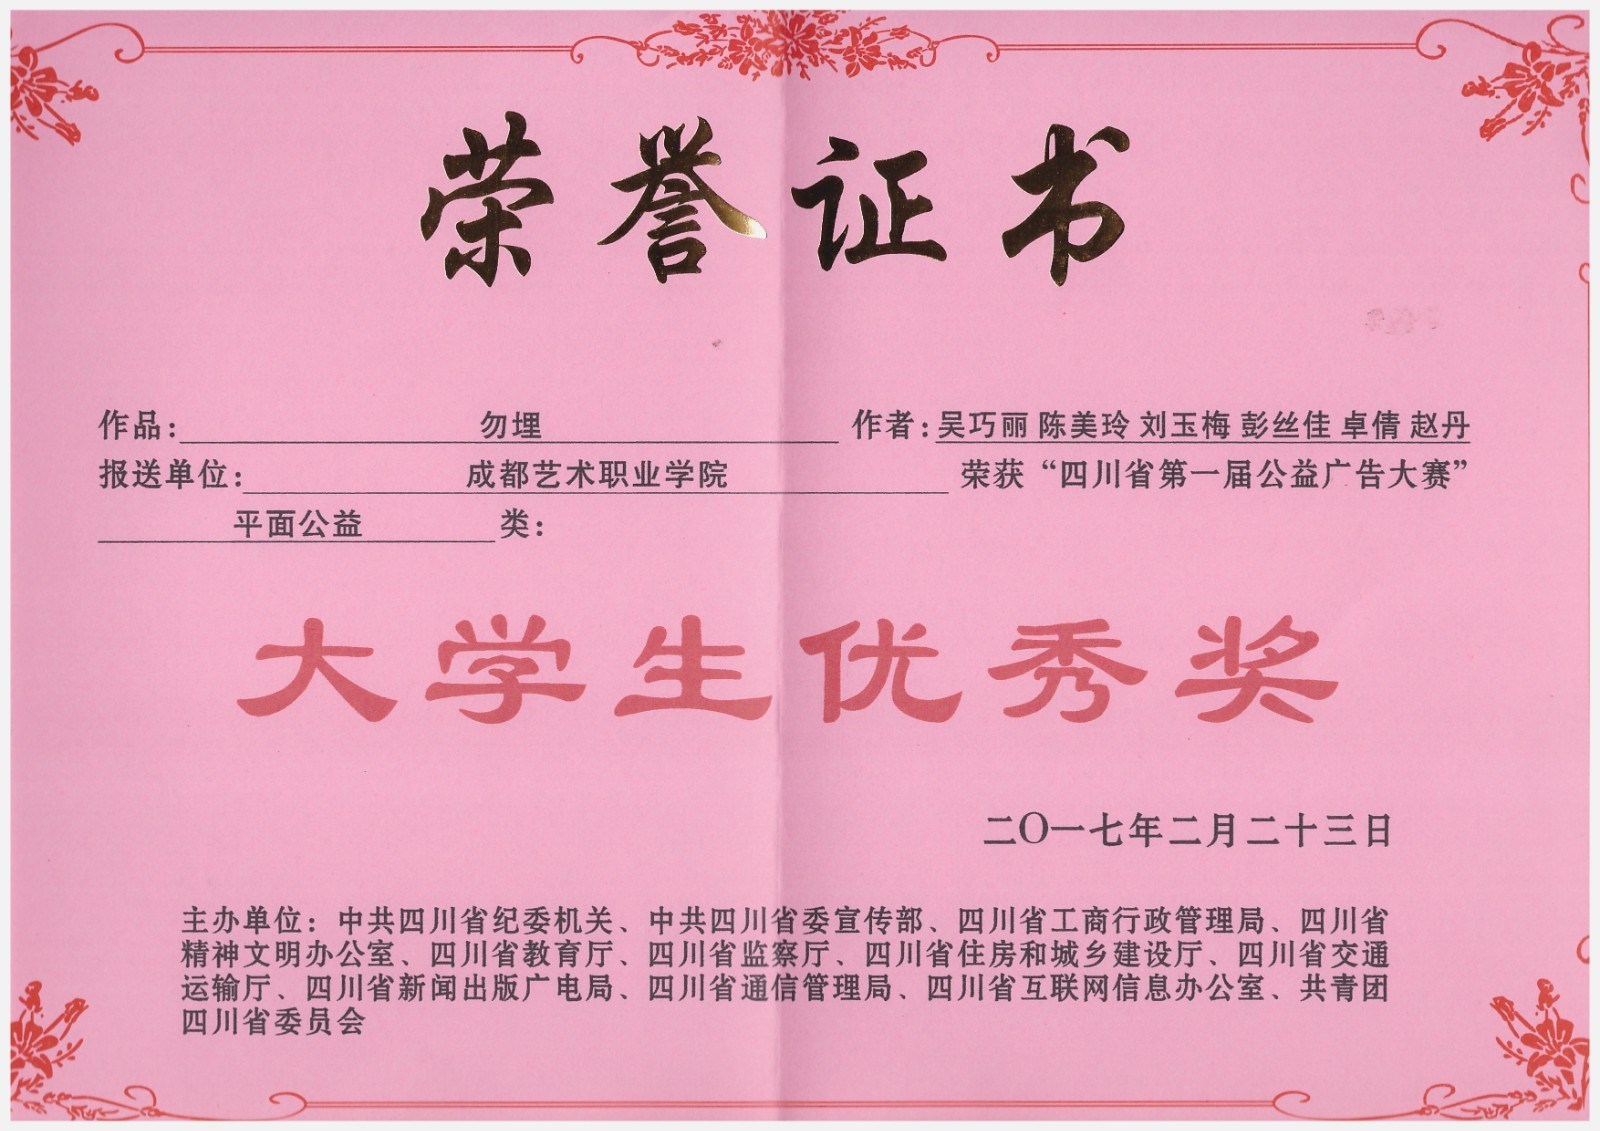 荣誉证书
作品: 勿埋 作者: 吴巧丽 陈美玲 刘玉梅 彭丝佳 卓倩 赵丹
报送单位: 成都艺术职业学院 荣获“四川省第一届公益广告大赛”
平面公益 类:
大学生优秀奖
二〇一七年二月二十三日
主办单位：中共四川省纪委机关、中共四川省委宣传部、四川省工商行政管理局、四川省
精神文明办公室、四川省教育厅、四川省监察厅、四川省住房和城乡建设厅、四川省交通
运输厅、四川省新闻出版广电局、四川省通信管理局、四川省互联网信息办公室、共青团
四川省委员会